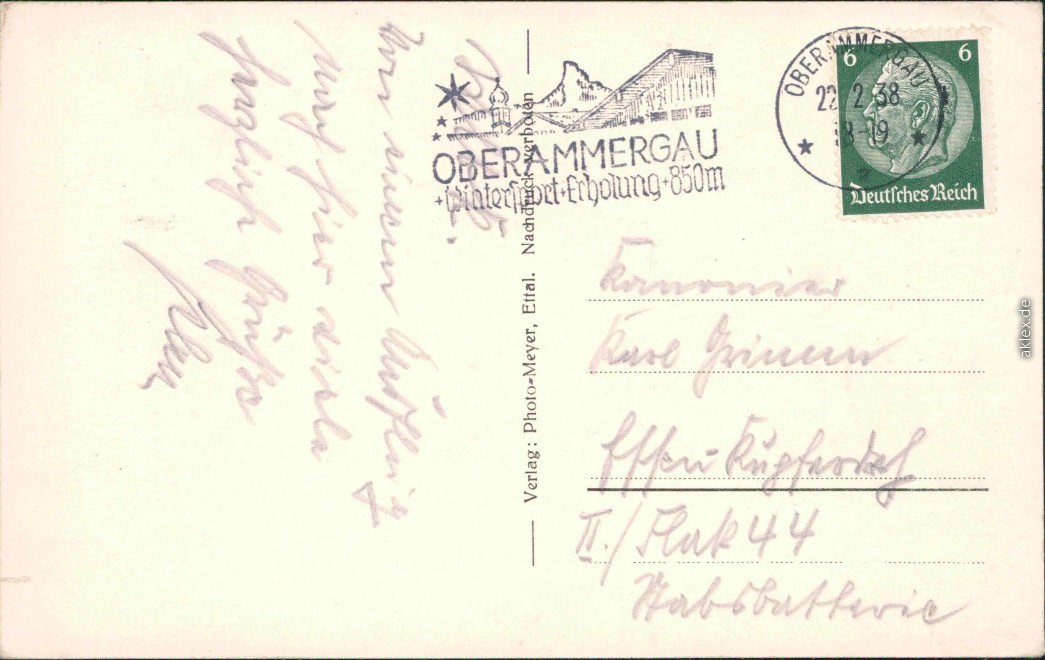 Von unserm Ausflug
nach hier viele
herzliche Grüße
OBERAMMERGAU
Wintersport + Erholung + 850m
Verlag: Photo-Meyer, Ettal. Nachdruck verboten
OBERAMMERGAU
22.2.38
18-19
6 6
Deutsches Reich
Kanonier
Karl
Essen Kupferdreh
II./Flak 44
Stabsbatterie
aklex.de